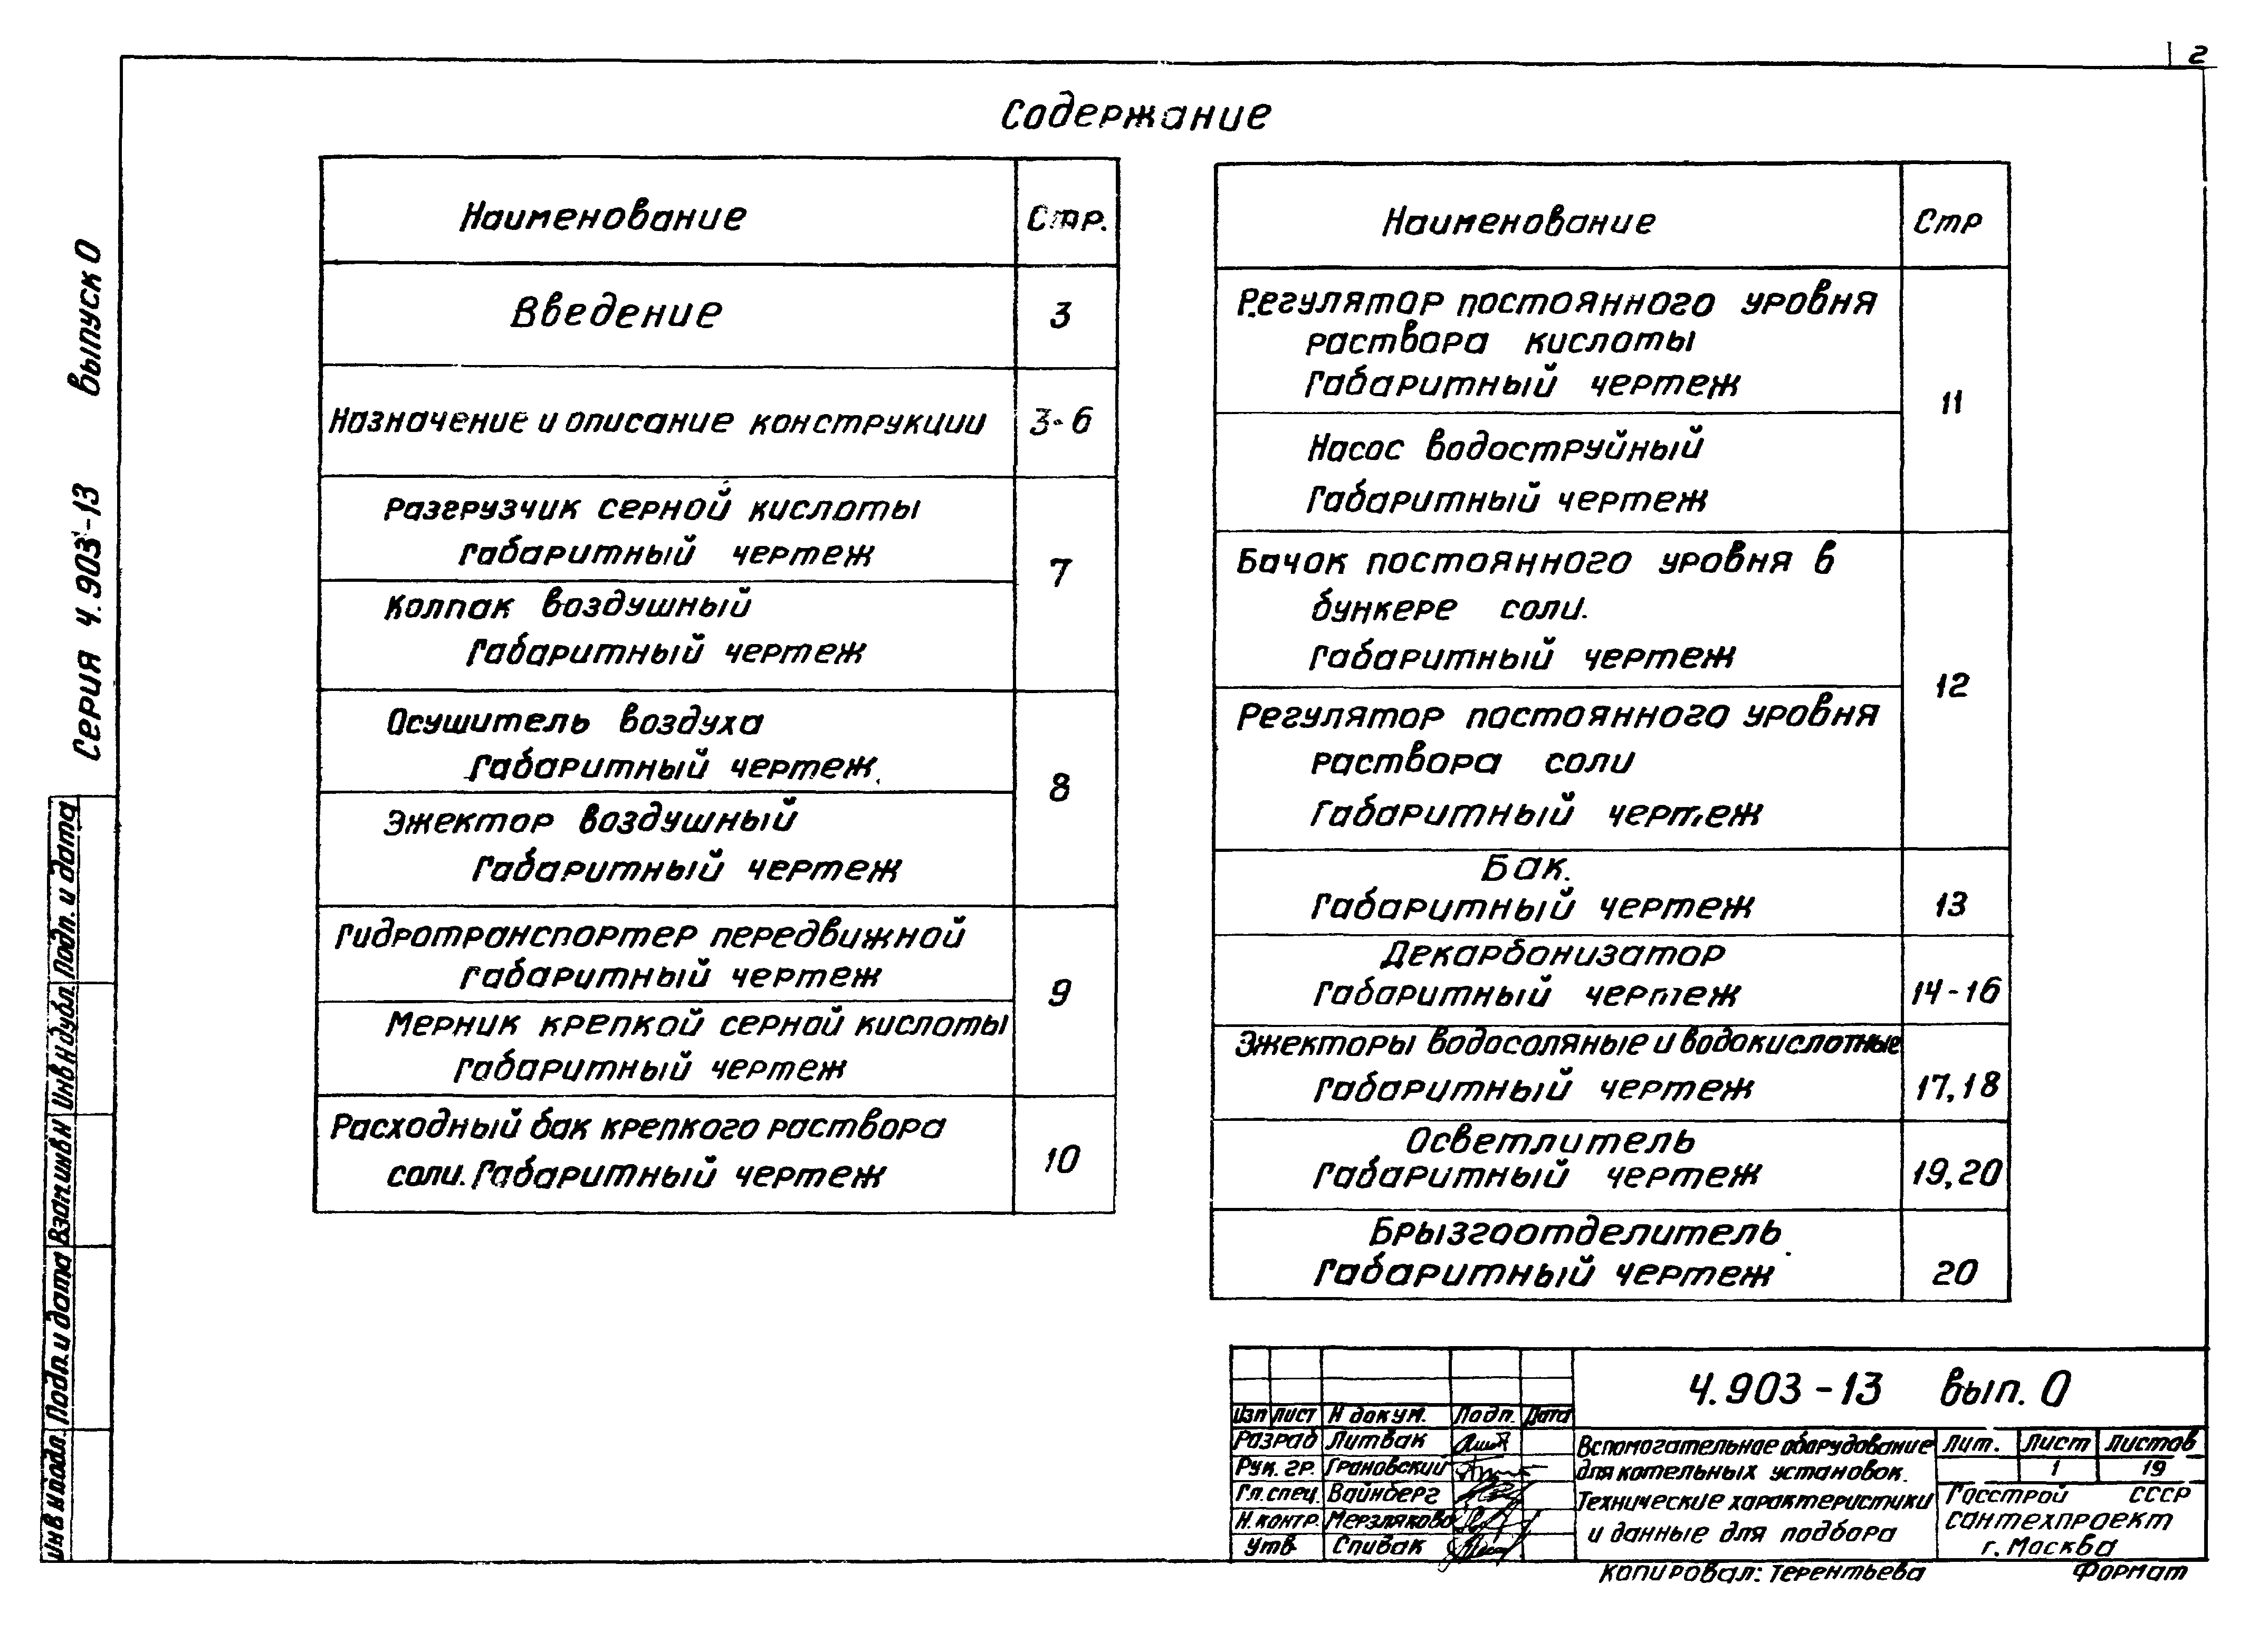 2
Содержание
Наименование Стр.
Введение 3
Назначение и описание конструкции 3-6
Разгрузчик серной кислоты
Габаритный чертеж
7
Колпак воздушный
Габаритный чертеж
Осушитель воздуха
Габаритный чертеж
8
Эжектор воздушный
Габаритный чертеж
Гидротранспортер передвижной
Габаритный чертеж
9
Мерник крепкой серной кислоты
Габаритный чертеж
Расходный бак крепкого раствора
соли. Габаритный чертеж
10
Наименование Стр
Регулятор постоянного уровня
раствора кислоты
Габаритный чертеж
11
Насос водоструйный
Габаритный чертеж
Бачок постоянного уровня в
бункере соли.
Габаритный чертеж
12
Регулятор постоянного уровня
раствора соли
Габаритный чертеж
Бак.
Габаритный чертеж 13
Декарбонизатор
Габаритный чертеж 14-16
Эжекторы водосоляные и водокислотные
Габаритный чертеж 17,18
Осветлитель
Габаритный чертеж 19,20
Брызгоотделитель
Габаритный чертеж 20
Серия 4.903-13 выпуск 0
Инв N подл. Подп. и дата Взам. инв N Инв N дубл. Подп. и дата
4.903-13 вып. 0
Изм Лист N докум. Подп. Дата
Разраб Литвак
Рук. гр. Грановский
Гл. спец. Вайнберг
Н. контр. Мерзлякова
Утв Спивак
Вспомогательное оборудование
для котельных установок.
Технические характеристики
и данные для подбора
Лит. Лист Листов
1 19
Госстрой СССР
сантехпроект
г. Москва
Копировал: Терентьева Формат